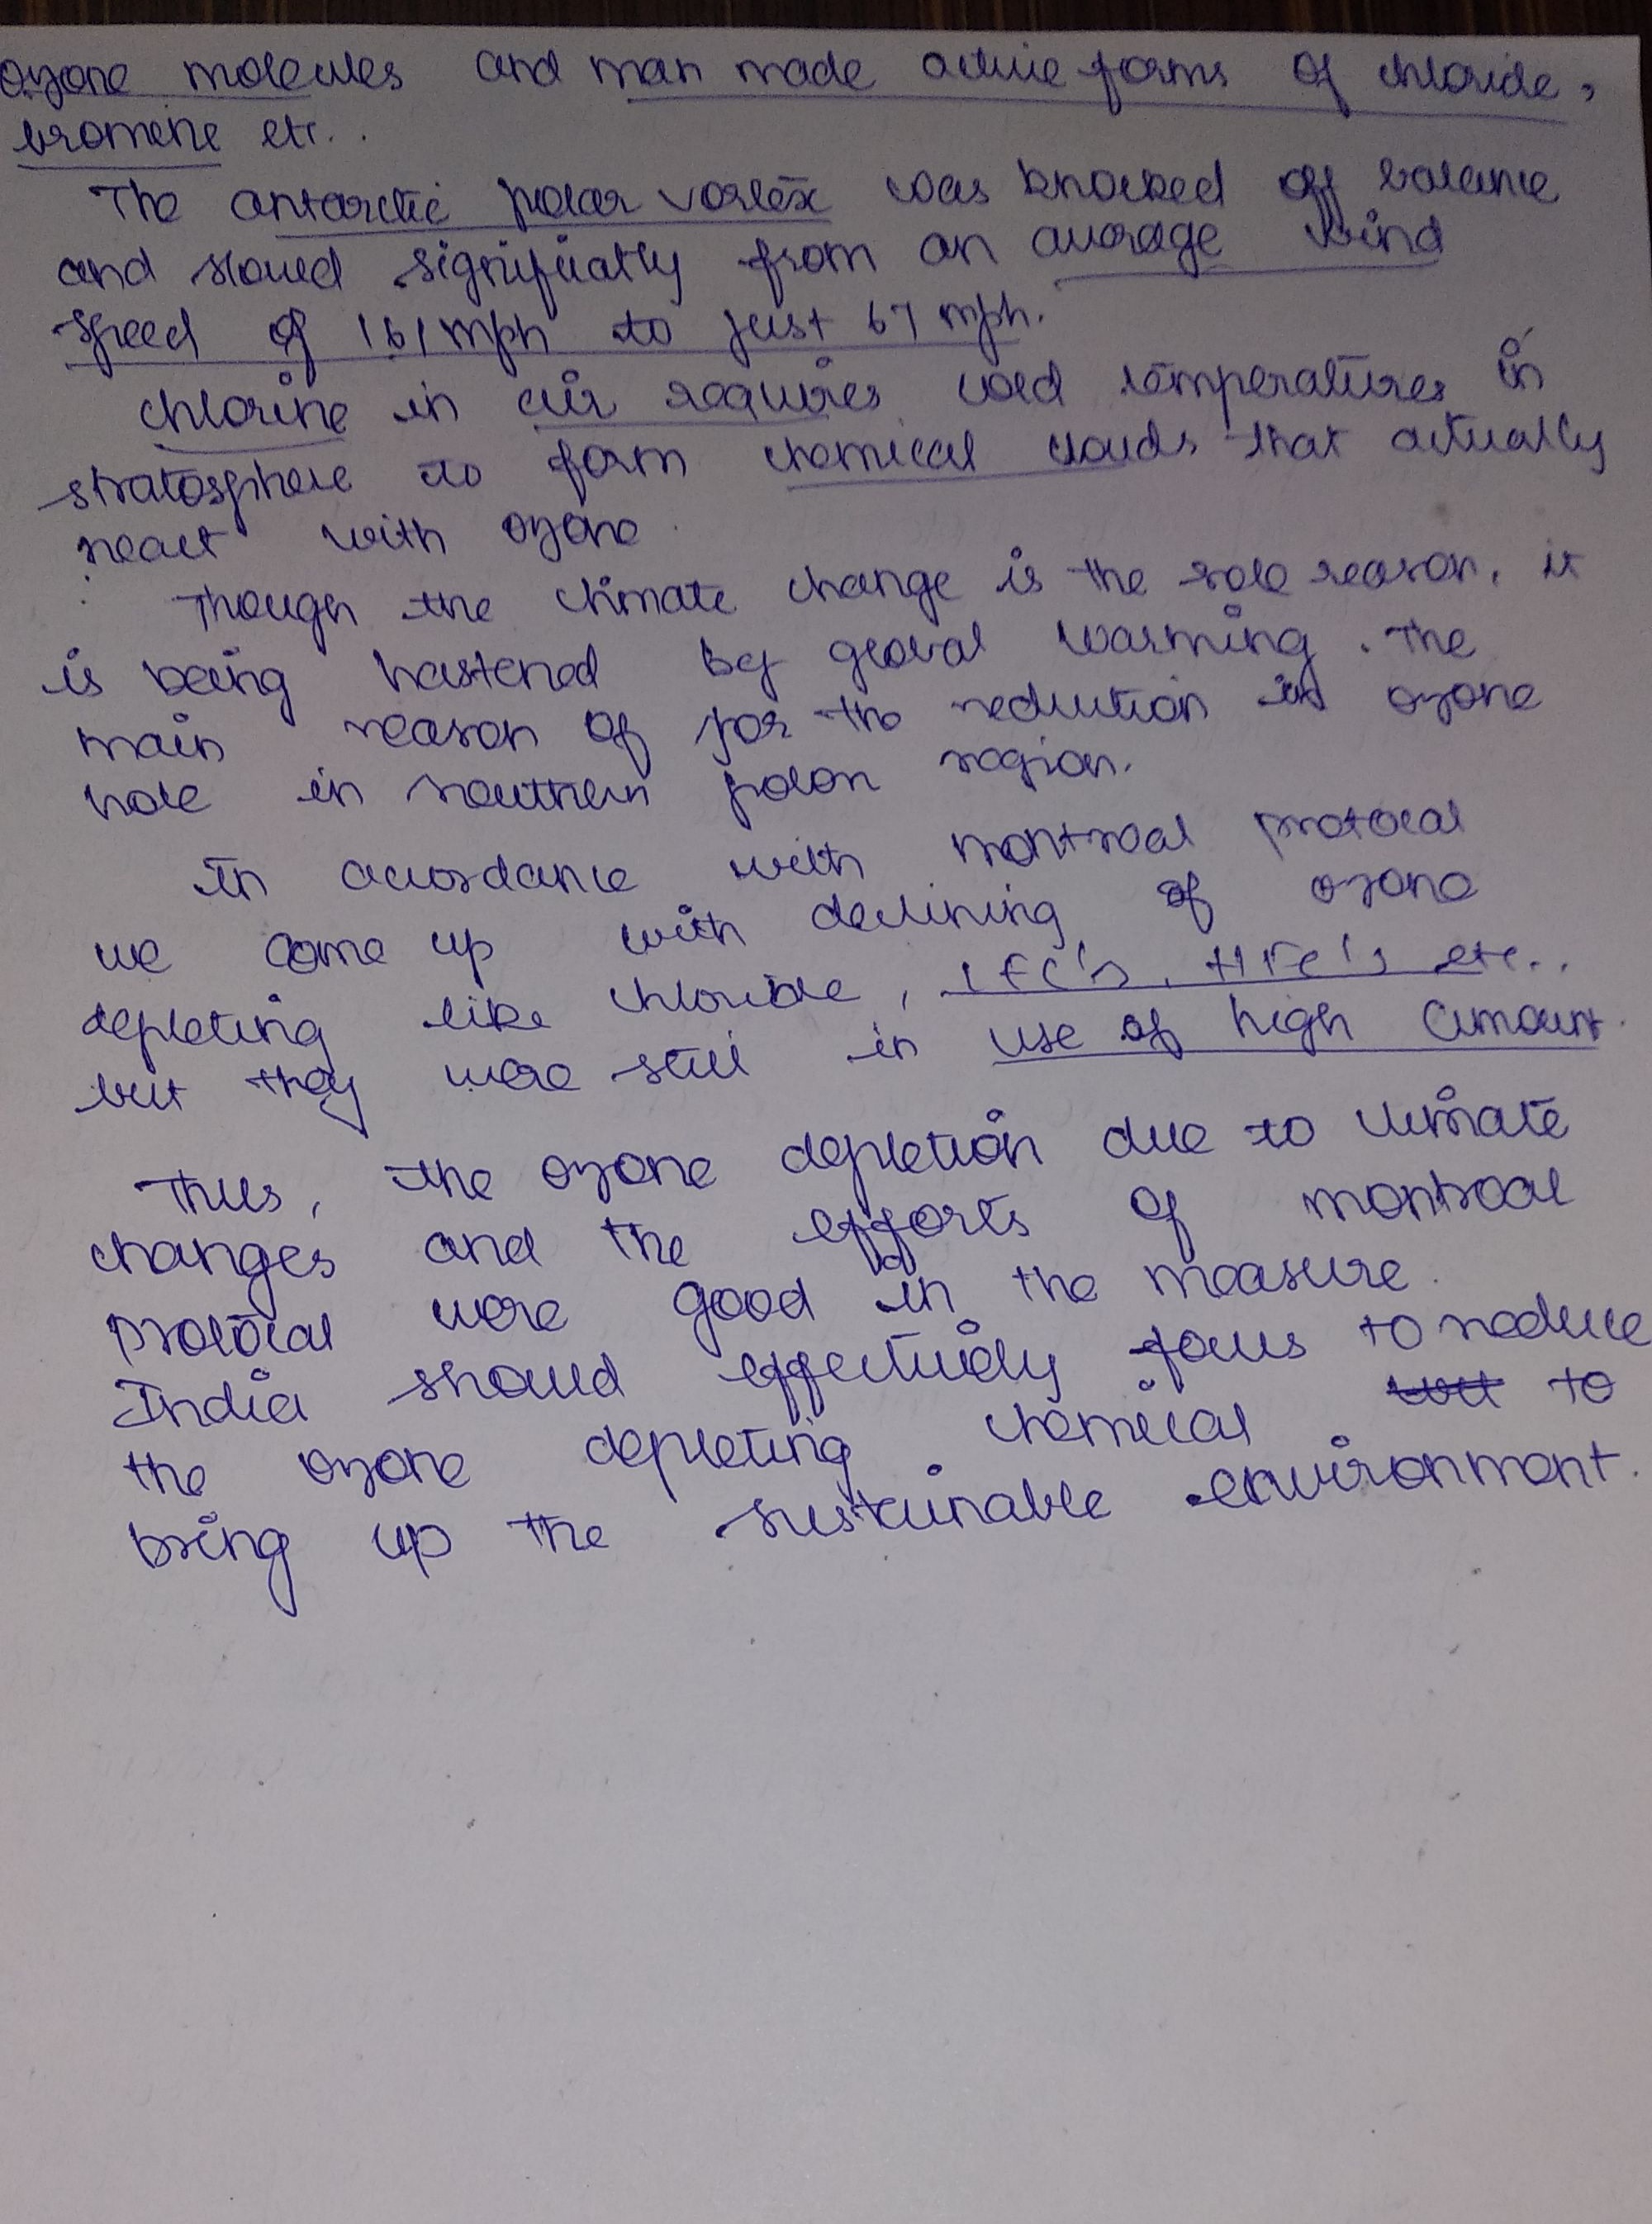 ozone molecules and man made active forms of chloride,
bromene etc..
The antarctic polar vortex was knocked off balance
and slowed significatly from an average wind
speed of 161 mph to just 67 mph.
chlorine in air requires cold temperatures in
stratosphere to form chemical clouds that actually
react with ozone.
Though the climate change is the sole reason, it
is being hastened by global warming. The
main reason of for the reduction in ozone
hole in southern polar region.
In accordance with montreal protocal
we come up with declining of ozone
depleting like chloride, CFC's, HFC's etc..
but they were still in use of high amount.
Thus, the ozone depletion due to climate
changes and the efforts of montreal
protocal were good in the measure.
India should effectively focus to reduce
the ozone depleting chemical to
bring up the sustainable environment.